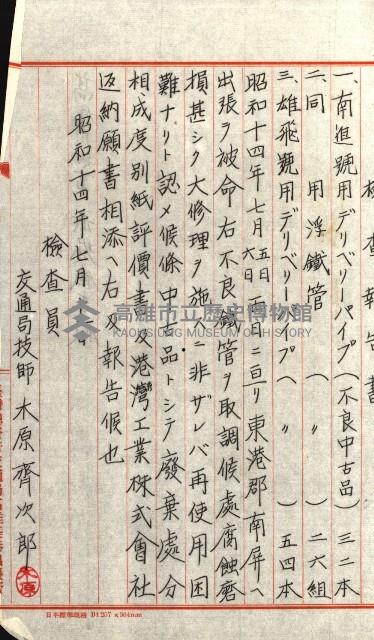 檢查報告書
一、南進號用デリベリーパイプ(不良中古品)三二本
二、同　　用浮鐵管(　〃　)二六組
三、雄飛號用デリベリーパイプ(　〃　)五四本
昭和十四年七月五日六日両日ニ亘リ東港郡南屏ヘ
出張ヲ被命右不良鐵管ヲ取調候處腐蝕磨
損甚シク大修理ヲ施スニ非ザレバ再使用困
難ナリト認メ候條中古品トシテ廢棄處分
相成度別紙評價書及港灣工業株式會社
返納願書相添ヘ右及報告候也
昭和十四年七月
檢查員
交通局技師 木原齊次郎
木原
高雄市立歷史博物館
KAOHSIUNG MUSEUM OF HISTORY
日本標準規格 B4 257×364mm